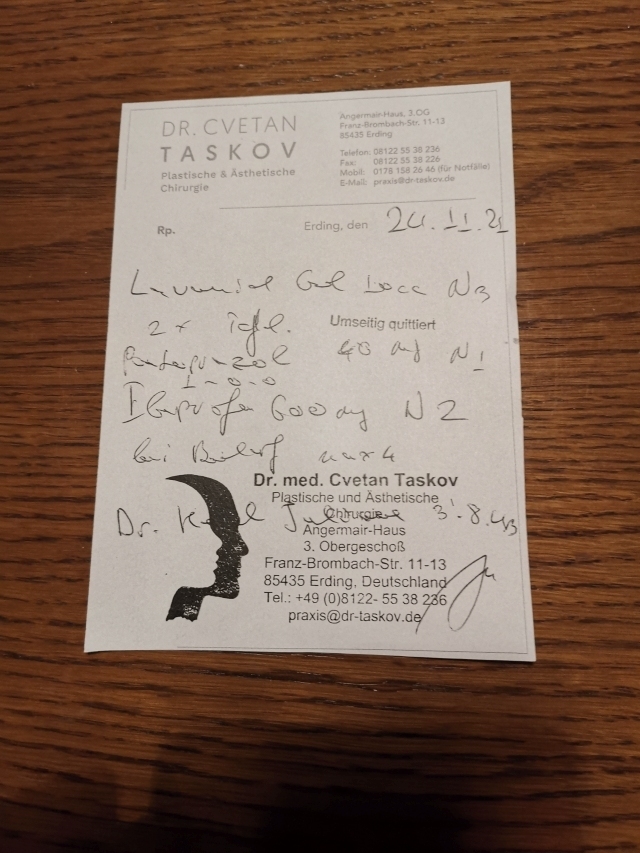 DR. CVETAN
TASKOV
Plastische & Ästhetische
Chirurgie
Angermair-Haus, 3.OG
Franz-Brombach-Str. 11-13
85435 Erding
Telefon: 08122 55 38 236
Fax: 08122 55 38 226
Mobil: 0178 158 26 46 (für Notfälle)
E-Mail: praxis@dr-taskov.de
Rp.
Erding, den 24.11.21
Gel N3
2 x tgl.
Umseitig quittiert
Pantoprazol 40 mg N1
1-0-0
Ibuprofen 600 mg N2
bei Bedarf max 4
Dr. 3.8.43
Dr. med. Cvetan Taskov
Plastische und Ästhetische
Chirurgie
Angermair-Haus
3. Obergeschoß
Franz-Brombach-Str. 11-13
85435 Erding, Deutschland
Tel.: +49 (0)8122- 55 38 236
praxis@dr-taskov.de